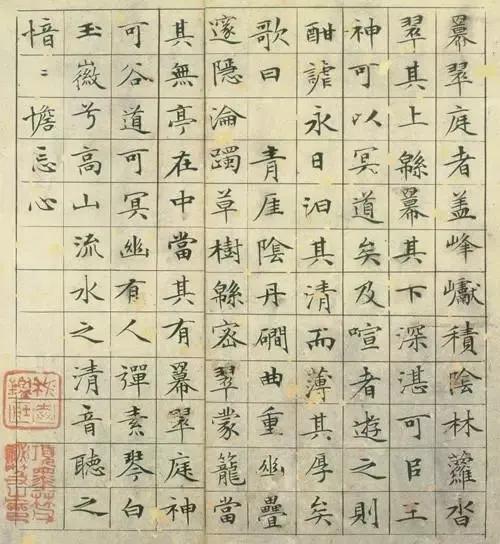 羃翠庭者盖峰巘積陰林蘿沓
翠其上緜羃其下深湛可㠯王
神可以冥道矣及喧者遊之則
酣謔永日汩其清而薄其厚矣
歌曰　青厓陰丹磵曲重幽疊
邃隱淪躅草樹緜密翠蒙籠當
其無亭在中當其有羃翠庭神
可谷道可冥幽有人彈素琴白
玉徽兮高山流水之清音聽之
愔〻憺忘心